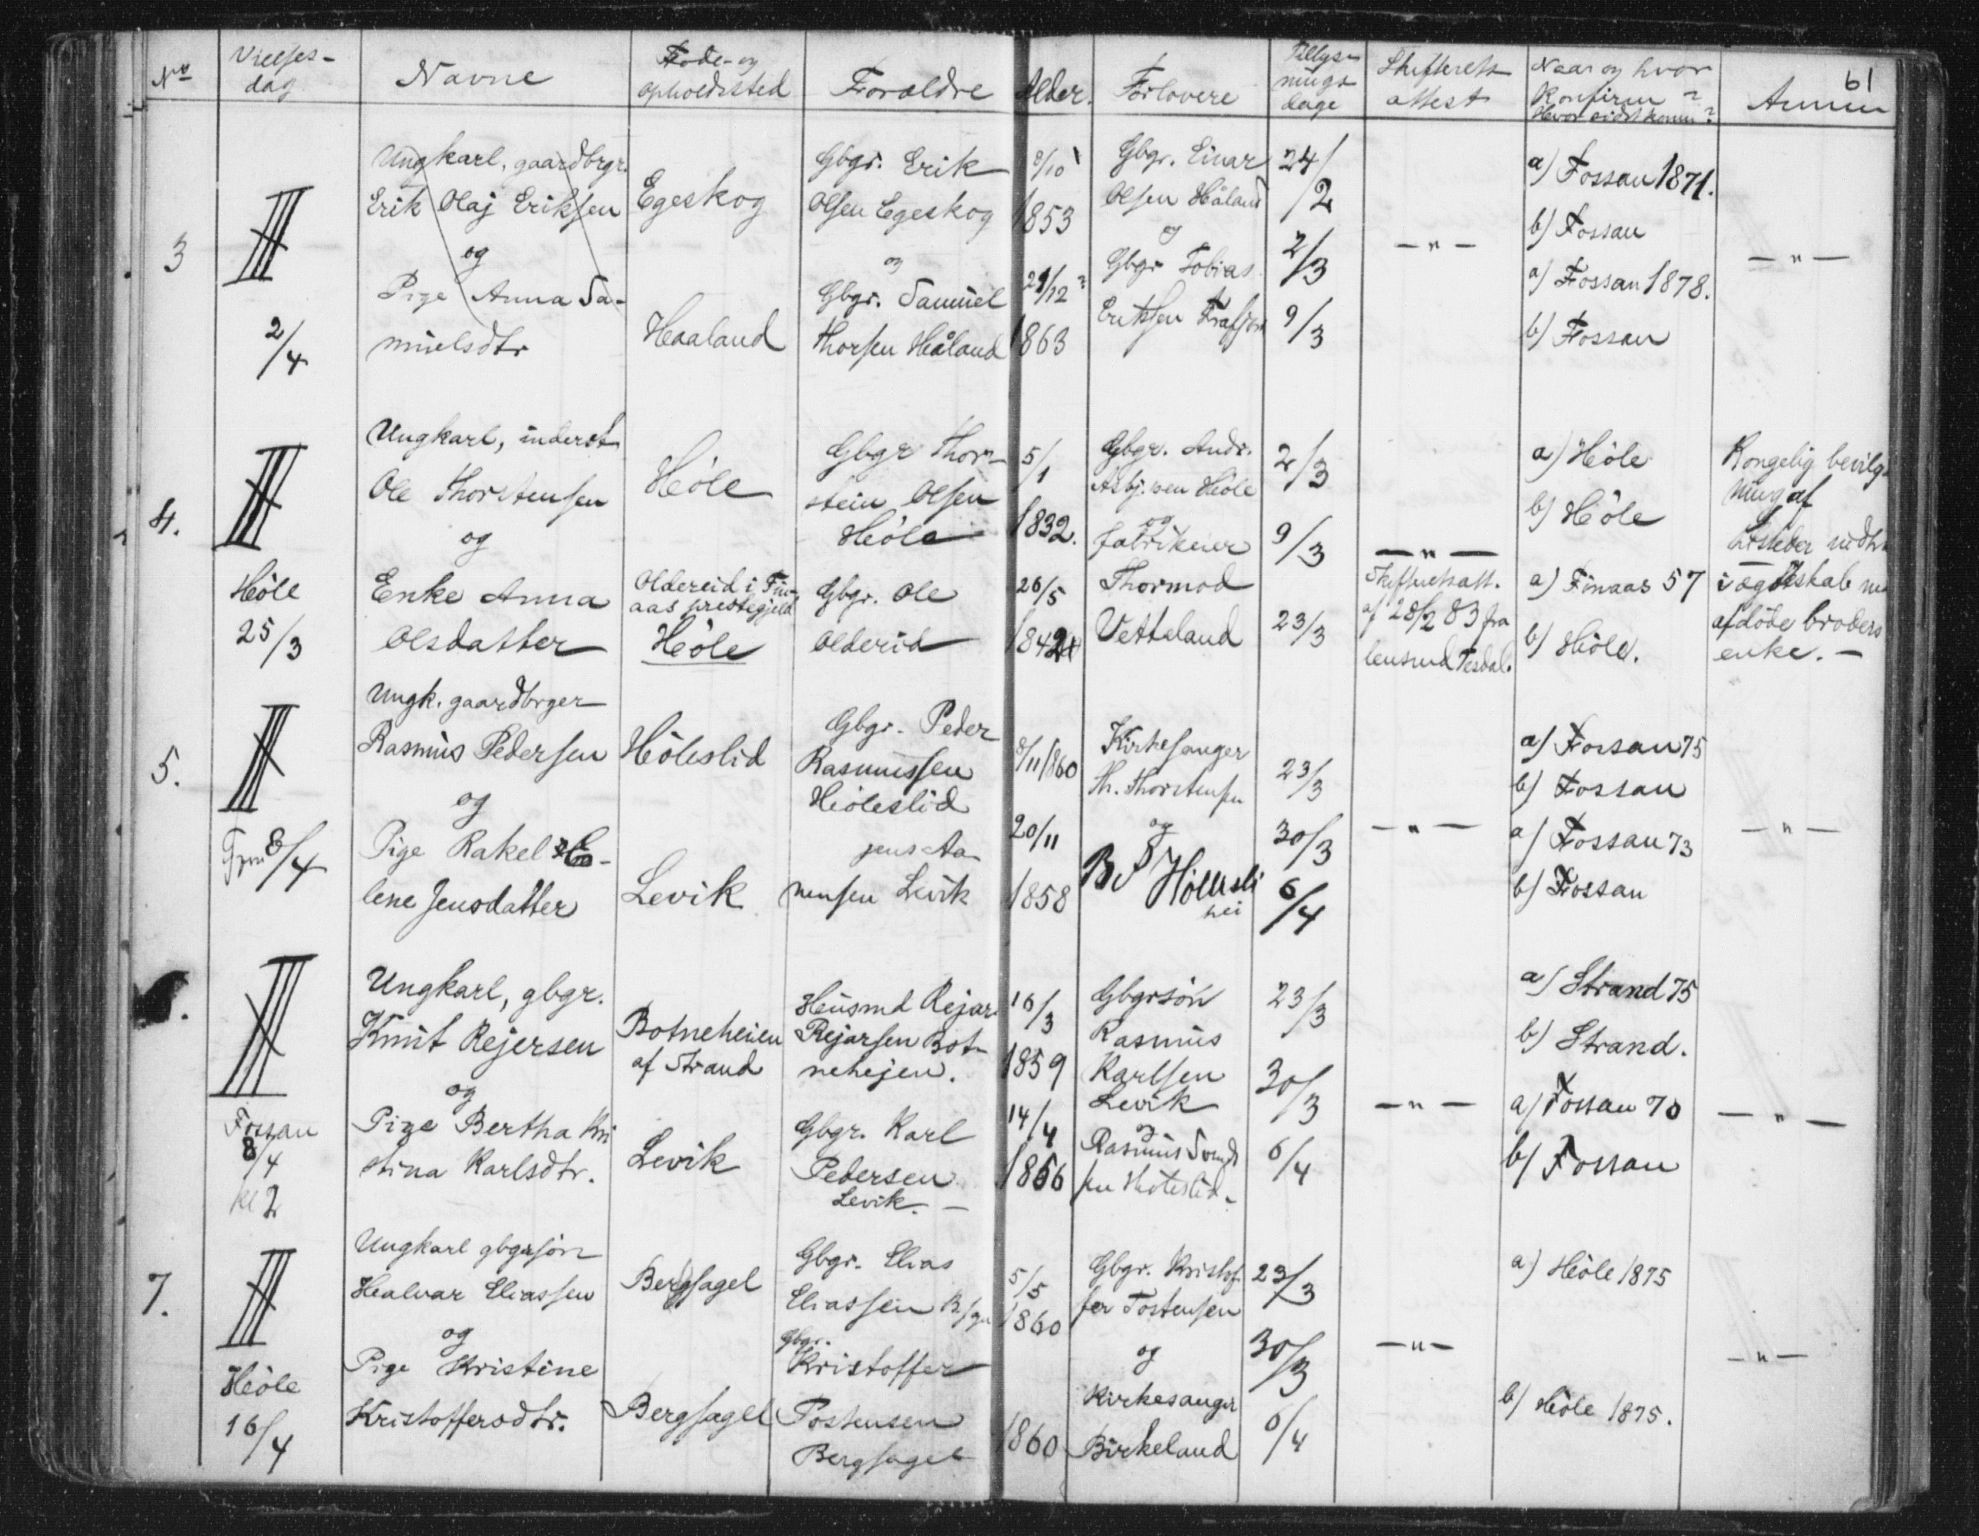 61
No Vielses-dag Navne Føde- og opholdssted Forældre Alder. Forlovere Tillysningsdage Skifterets attest Naar og hvor Konfirm? Hvor sidst komm? Anm
3
2/4
Ungkarl, gaardbrgr.
Erik Olaj Eriksen
og
Pige Anna Sa-
muelsdtr
Egeskog
Haaland
Gbgr. Erik
Olsen Egeskog
og
Gbgr. Samuel
Thorsen Håland
8/10
1853
29/12 ?
1863
Gbgr. Einar
Olsen Håland
og
Gbgr Tobias
Eriksen Frafjord
24/2
2/3
9/3
— " —
a) Fossan 1871.
b) Fossan
a) Fossan 1878.
b) Fossan
— " —
4.
Høle
25/3
Ungkarl, inderst
Ole Thorstensen
og
Enke Anna
Olsdatter
Høle
Oldereid i Fin-
aas prestegjeld
Høle
Gbgr Thor-
stein Olsen
Høle
Gbgr. Ole
Oldereid
5/1
1832.
26/5
1842
Gbgr. Andr.
Asbj.sen Høle
og
fabrikeier
Thormod
Vetteland
2/3
9/3
23/3
— " —
Skifteretsatt.
af 28/2 83 fra
lensmd Tesdal.
a) Høle
b) Høle
a) Finaas 57
b) Høle.
Kongelig bevilg-
ning af
indtr
i ægteskab m
afdøde broders
enke. —
5.
8/4
Ungk. gaardbrger
Rasmus Pedersen
og
Pige Rakel E-
lene Jensdatter
Høleslid
Levik
Gbgr. Peder
Rasmussen
Høleslid
Jens Aa-
nensen Levik
8/11 1860
20/11
1858
Kirkesanger
Th. Thorstensen
og
23/3
30/3
6/4
— " —
a) Fossan 75
b) Fossan
a) Fossan 73
b) Fossan
— " —
Fossan
8/4
kl 2
Ungkarl, gbgr.
Knut Rejersen
og
Pige Bertha Kri
stina Karlsdtr.
Botneheien
af Strand
Levik
Husmd Rejar
Rejarsen Bot-
nehejen.
Gbgr. Karl
Pedersen
Levik. —
16/3
1859
14/4
1856
Gbgrsøn
Rasmus
Karlsen
Levik
og
Rasmus Svend
sen Høleslid.
23/3
30/3
6/4
— " —
a) Strand 75
b) Strand.
a) Fossan 70
b) Fossan
— " —
7.
Høle
16/4
Ungkarl gbgrsøn
Halvar Eliassen
og
Pige Kristine
Kristoffersdtr.
Bergsagel
Bergsagel
Gbgr. Elias
Eliassen
Gbgr.
Kristoffer
Postensen
Bergsagel
5/5
1860
1860
Gbgr. Kristof-
fer Tostensen
og
Kirkesanger
Birkeland
23/3
30/3
6/4
— " —
a) Høle 1875
b) Høle 1875.
— " —